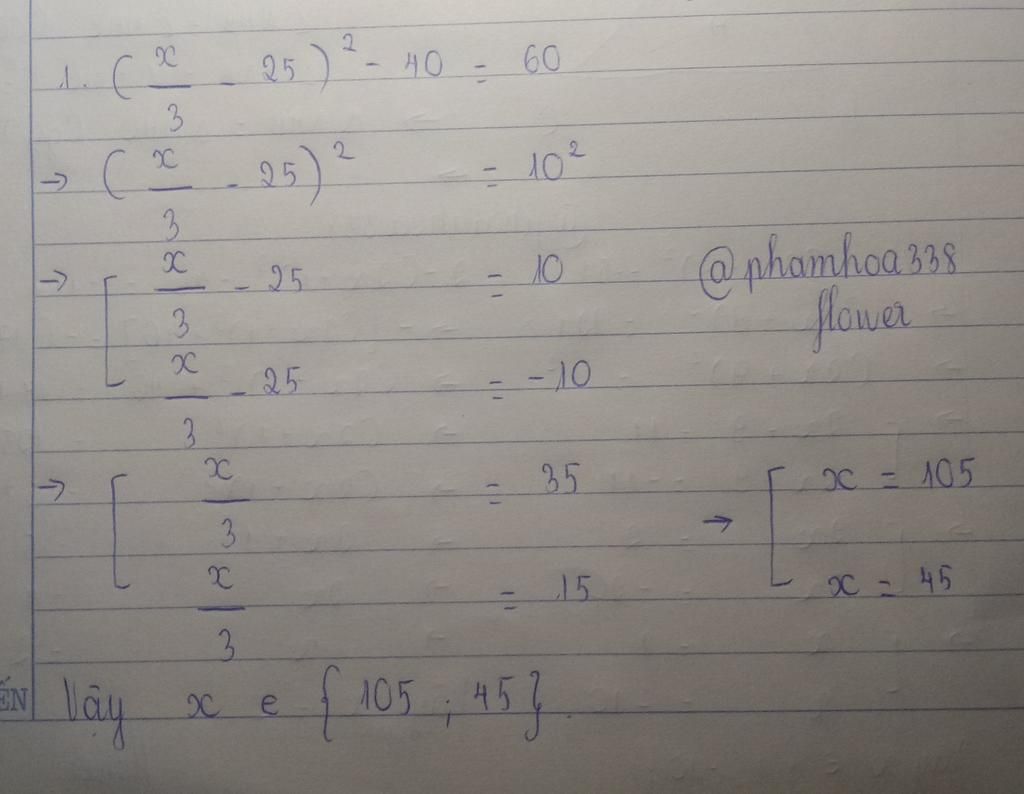 1. (x/3 - 25)² - 40 = 60
→ (x/3 - 25)² = 10²
→ [ x/3 - 25 = 10
x/3 - 25 = -10
@phamhoa338
flower
→ [ x/3 = 35
x/3 = 15
→ [ x = 105
x = 45
ẾN
Vậy x e {105 ; 45}.